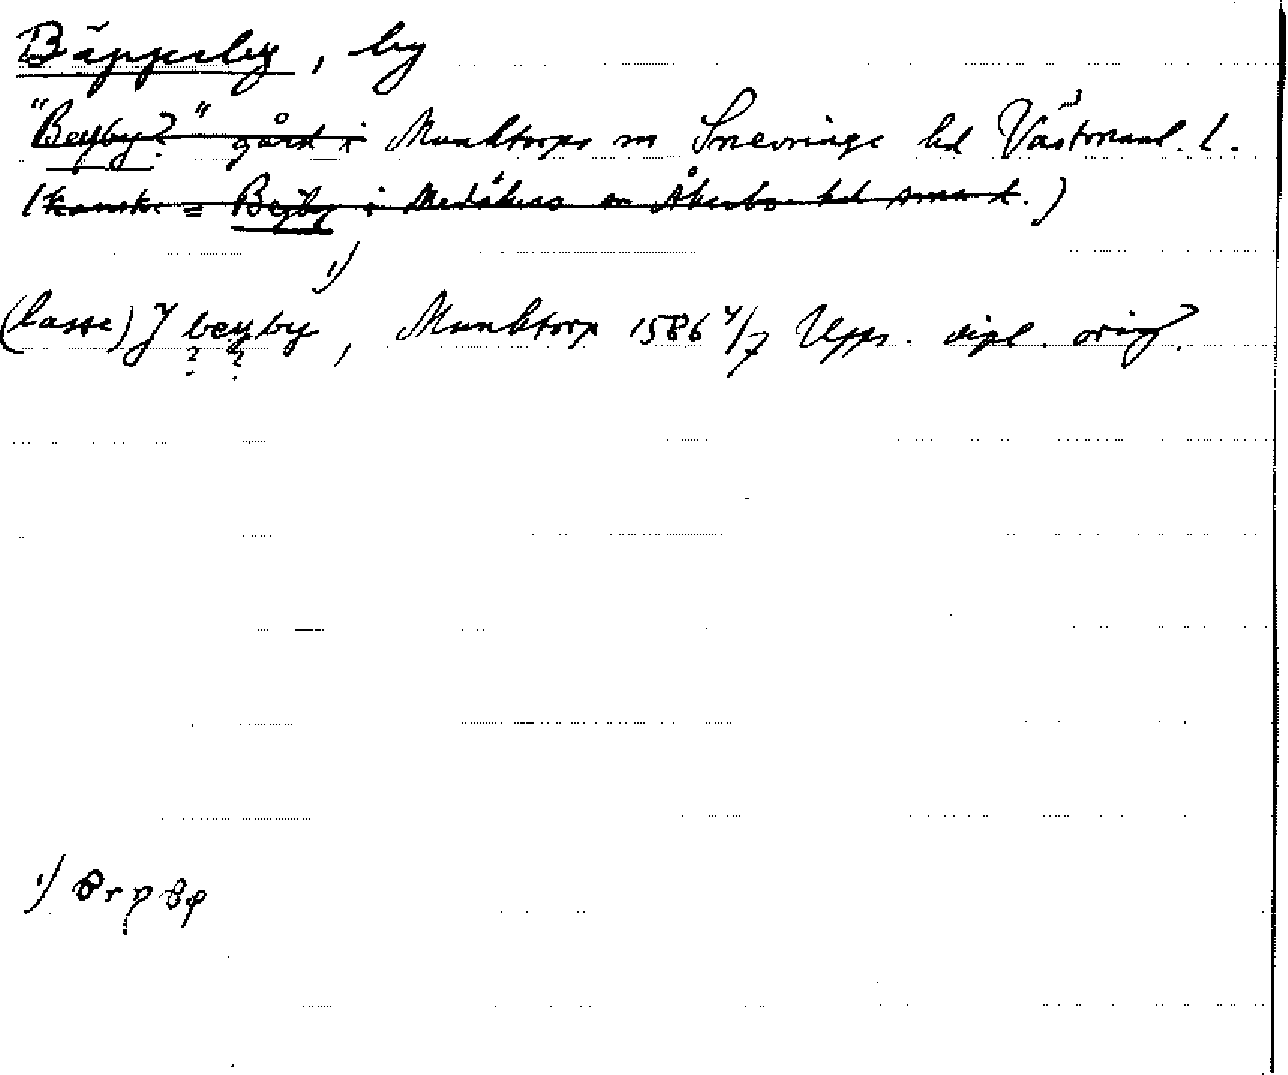 Bäpperby, by
"Beyby?" gård i Munktorps sn Snevringe hd Västmanl. l.
(Kanske = Beÿby i Medåkers sn Åkerbo hd smst.)
1)
(lasse) J beyby, Munktorp 1586 4/7 Upps. dipl. orig.
? ?
1)